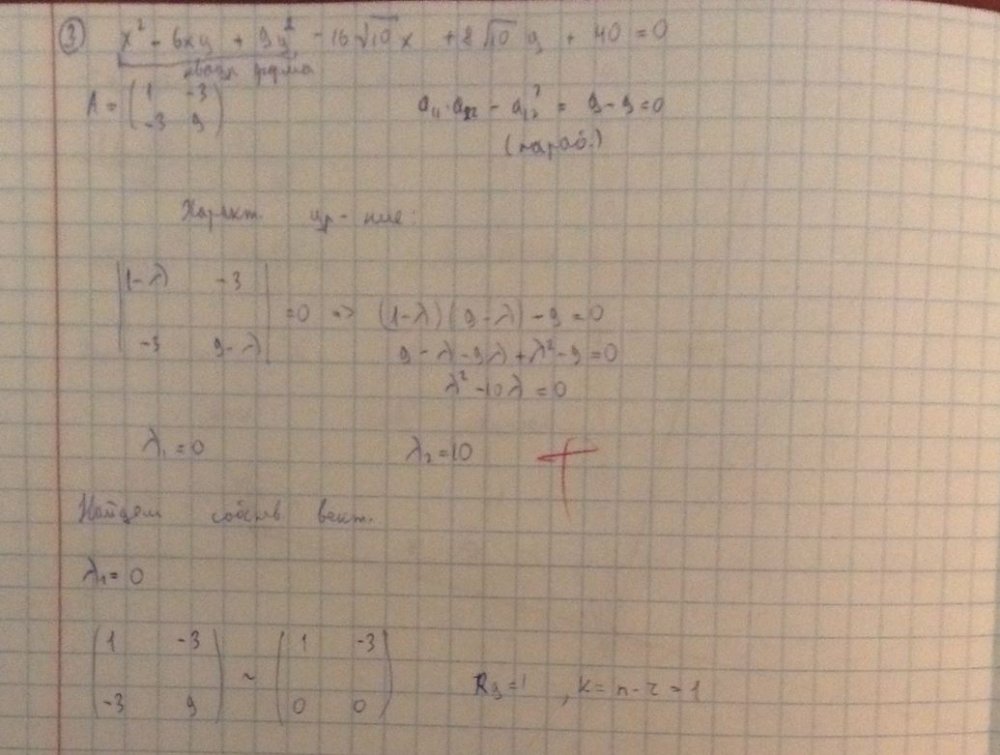 ③ x² - 6xy + 9y² - 16√10 x + 8√10 y + 40 = 0
квадр форма
A = (1 -3
-3 9)
a₁₁·a₂₂ - a₁₂² = 9 - 9 = 0
(параб.)
Характ. ур-ние:
|1-λ -3
-3 9-λ| = 0 => (1-λ)(9-λ) - 9 = 0
9 - λ - 9λ + λ² - 9 = 0
λ² - 10λ = 0
λ₁ = 0 λ₂ = 10
Найдем собств вект.
λ₁ = 0
(1 -3
-3 9) ~ (1 -3
0 0) Rg = 1, K = n - r = 1